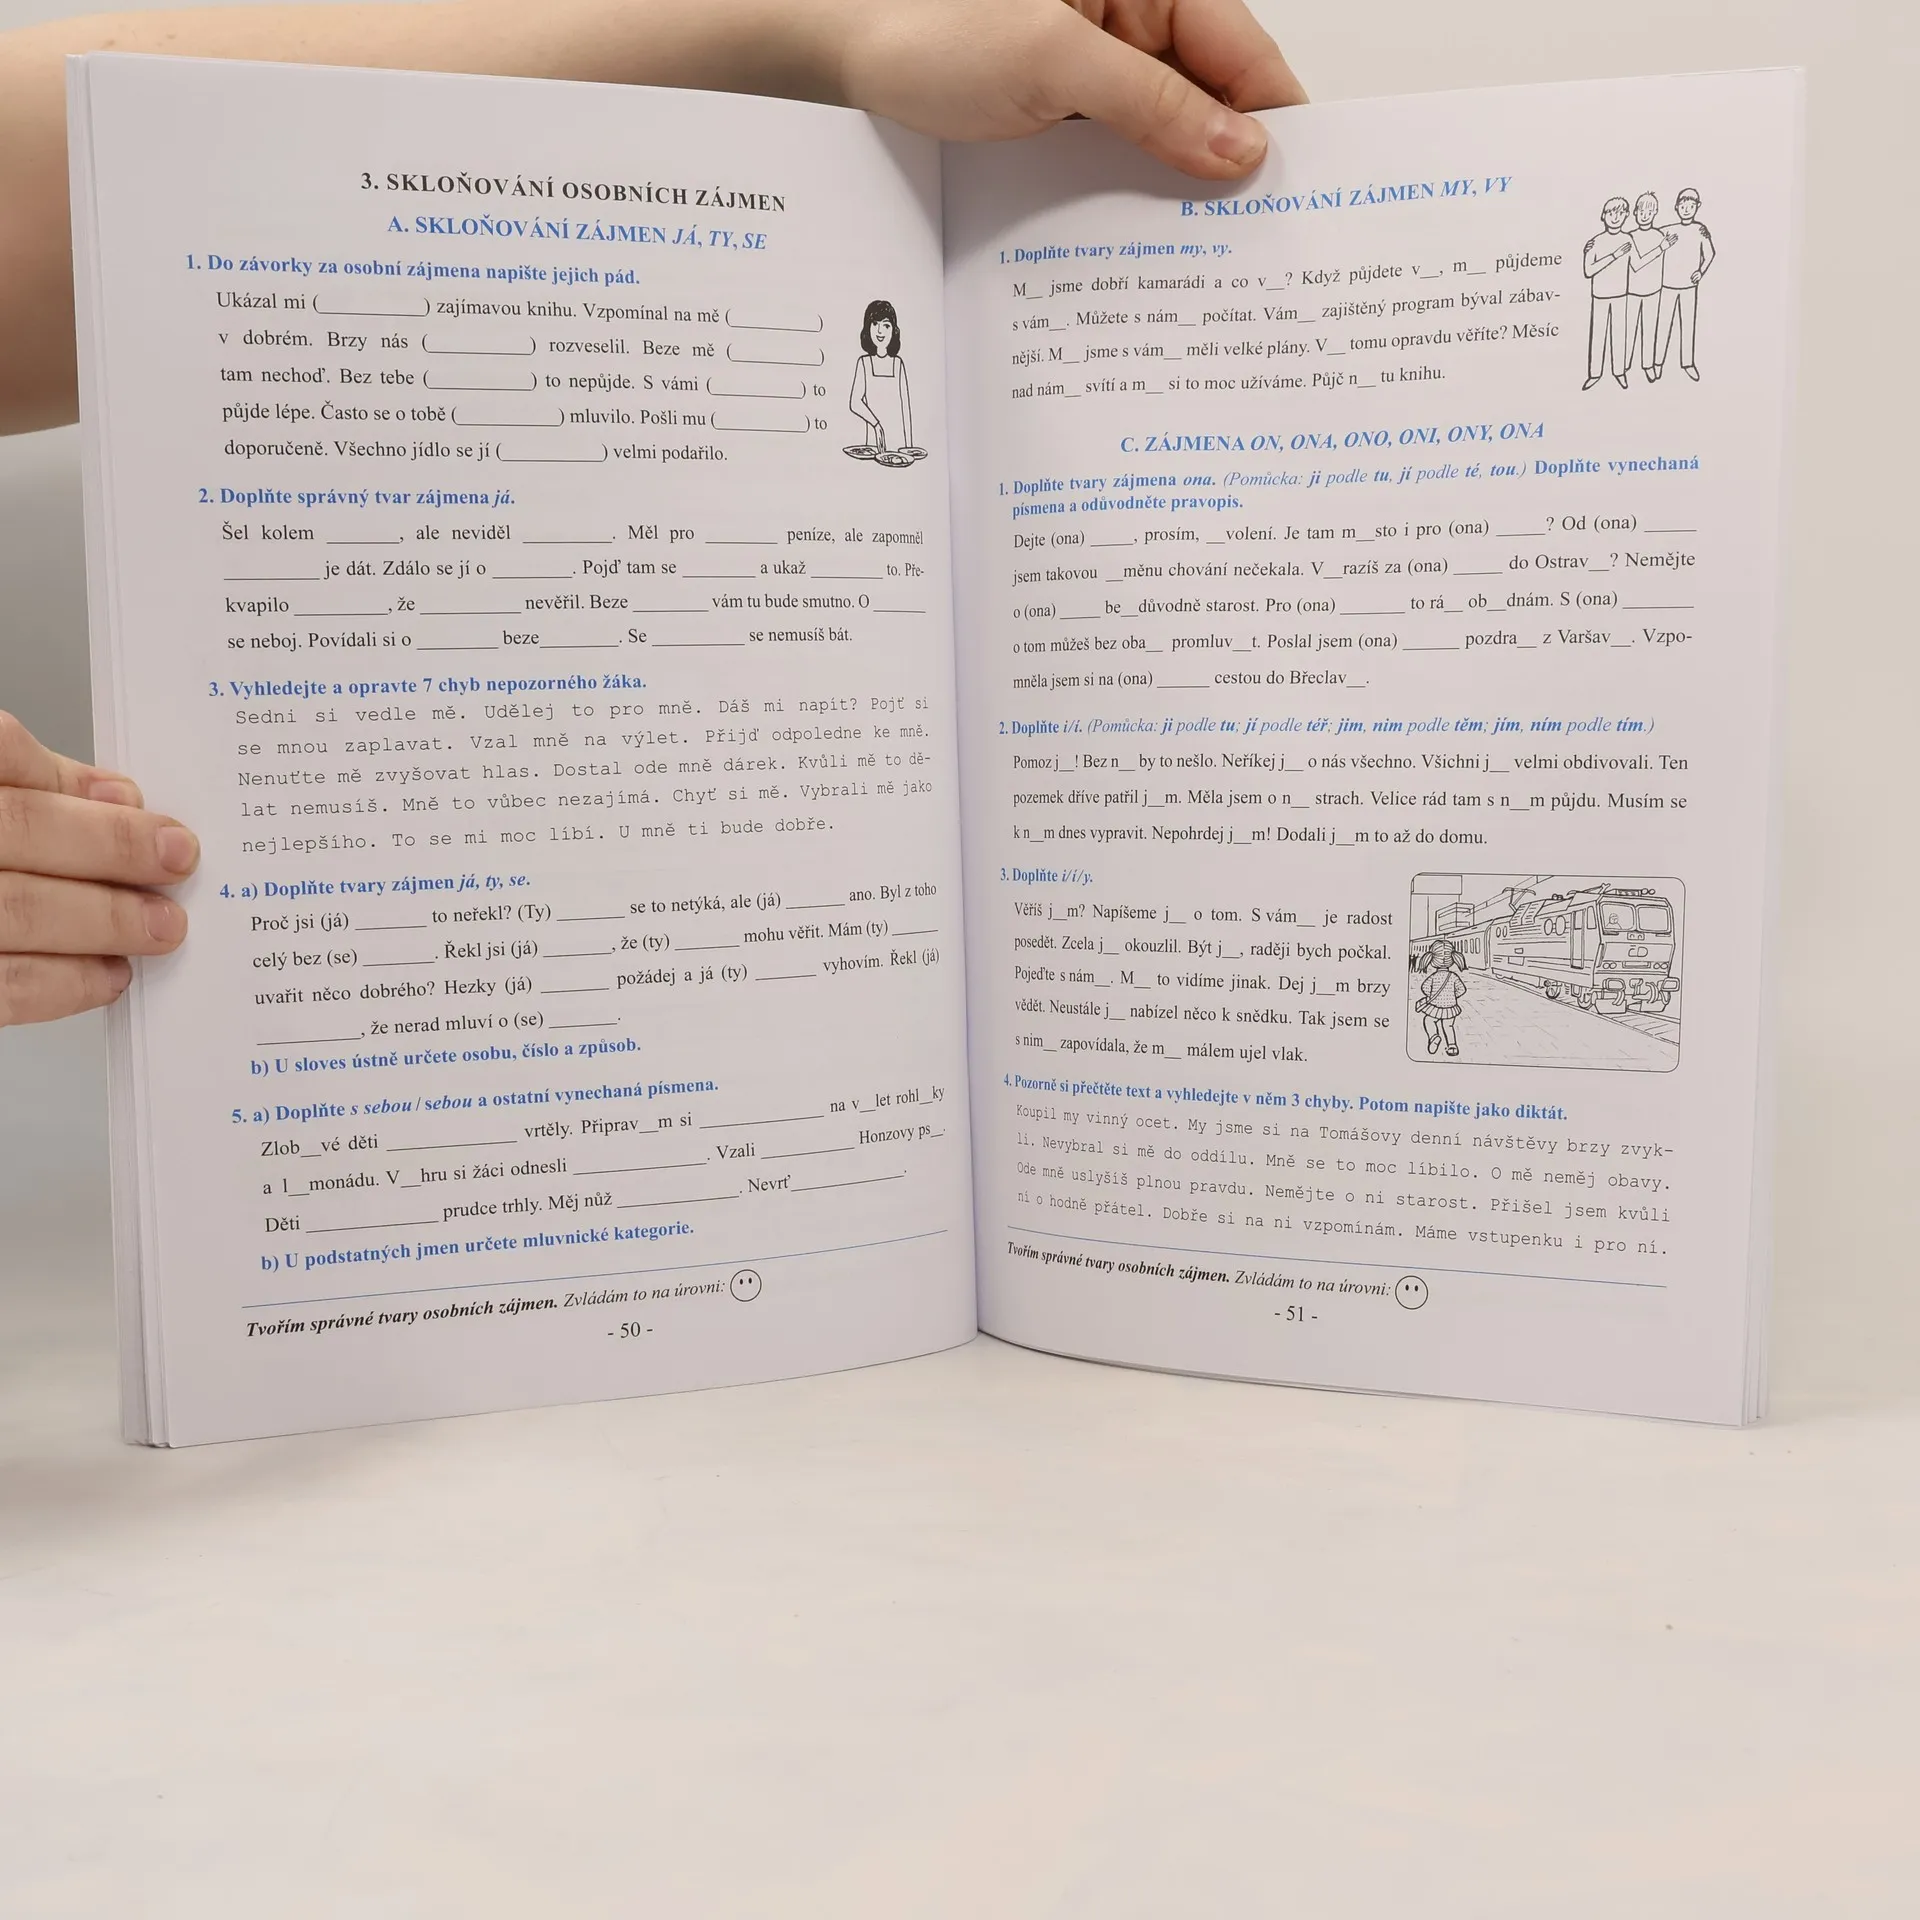 3. SKLOŇOVÁNÍ OSOBNÍCH ZÁJMEN
A. SKLOŇOVÁNÍ ZÁJMEN JÁ, TY, SE
1. Do závorky za osobní zájmena napište jejich pád.
Ukázal mi (__________) zajímavou knihu. Vzpomínal na mě (________)
v dobrém. Brzy nás (__________) rozveselil. Beze mě (________)
tam nechoď. Bez tebe (__________) to nepůjde. S vámi (________) to
půjde lépe. Často se o tobě (__________) mluvilo. Pošli mu (________) to
doporučeně. Všechno jídlo se jí (__________) velmi podařilo.
2. Doplňte správný tvar zájmena já.
Šel kolem ______, ale neviděl ________. Měl pro ______ peníze, ale zapomněl
________ je dát. Zdálo se jí o _______. Pojď tam se ______ a ukaž ______ to. Pře-
kvapilo ________, že ________ nevěřil. Beze ______ vám tu bude smutno. O ____
se neboj. Povídali si o _______ beze_______. Se ________ se nemusíš bát.
3. Vyhledejte a opravte 7 chyb nepozorného žáka.
Sedni si vedle mě. Udělej to pro mně. Dáš mi napít? Pojť si
se mnou zaplavat. Vzal mně na výlet. Přijď odpoledne ke mně.
Nenuťte mě zvyšovat hlas. Dostal ode mně dárek. Kvůli mě to dě-
lat nemusíš. Mně to vůbec nezajímá. Chyť si mě. Vybrali mě jako
nejlepšího. To se mi moc líbí. U mně ti bude dobře.
4. a) Doplňte tvary zájmen já, ty, se.
Proč jsi (já) ______ to neřekl? (Ty) ______ se to netýká, ale (já) _____ ano. Byl z toho
celý bez (se) ______. Řekl jsi (já) ______, že (ty) ______ mohu věřit. Mám (ty) ____
uvařit něco dobrého? Hezky (já) ______ požádej a já (ty) _____ vyhovím. Řekl (já)
_________, že nerad mluví o (se) ______.
b) U sloves ústně určete osobu, číslo a způsob.
5. a) Doplňte s sebou / sebou a ostatní vynechaná písmena.
Zlob__vé děti ___________ vrtěly. Připrav__m si __________ na v__let rohl__ky
a l__monádu. V__hru si žáci odnesli ___________. Vzali ________ Honzovy ps__.
Děti ___________ prudce trhly. Měj nůž __________. Nevrť_________.
b) U podstatných jmen určete mluvnické kategorie.
Tvořím správné tvary osobních zájmen. Zvládám to na úrovni:
- 50 -
B. SKLOŇOVÁNÍ ZÁJMEN MY, VY
1. Doplňte tvary zájmen my, vy.
M__ jsme dobří kamarádi a co v__? Když půjdete v__, m__ půjdeme
s vám__. Můžete s nám__ počítat. Vám__ zajištěný program býval zábav-
nější. M__ jsme s vám__ měli velké plány. V__ tomu opravdu věříte? Měsíc
nad nám__ svítí a m__ si to moc užíváme. Půjč n__ tu knihu.
C. ZÁJMENA ON, ONA, ONO, ONI, ONY, ONA
1. Doplňte tvary zájmena ona. (Pomůcka: ji podle tu, jí podle té, tou.) Doplňte vynechaná
písmena a odůvodněte pravopis.
Dejte (ona) ____, prosím, __volení. Je tam m__sto i pro (ona) ____? Od (ona) ____
jsem takovou __měnu chování nečekala. V__razíš za (ona) ____ do Ostrav__? Nemějte
o (ona) ____ be__důvodně starost. Pro (ona) ______ to rá__ ob__dnám. S (ona) ______
o tom můžeš bez oba__ promluv__t. Poslal jsem (ona) _____ pozdra__ z Varšav__. Vzpo-
mněla jsem si na (ona) _____ cestou do Břeclav__.
2. Doplňte i/í. (Pomůcka: ji podle tu; jí podle téř; jim, nim podle těm; jím, ním podle tím.)
Pomoz j__! Bez n__ by to nešlo. Neříkej j__ o nás všechno. Všichni j__ velmi obdivovali. Ten
pozemek dříve patřil j__m. Měla jsem o n__ strach. Velice rád tam s n__m půjdu. Musím se
k n__m dnes vypravit. Nepohrdej j__m! Dodali j__m to až do domu.
3. Doplňte i/í/y.
Věříš j__m? Napíšeme j__ o tom. S vám__ je radost
posedět. Zcela j__ okouzlil. Být j__, raději bych počkal.
Pojeďte s nám__. M__ to vidíme jinak. Dej j__m brzy
vědět. Neustále j__ nabízel něco k snědku. Tak jsem se
s nim__ zapovídala, že m__ málem ujel vlak.
ČD
4. Pozorně si přečtěte text a vyhledejte v něm 3 chyby. Potom napište jako diktát.
Koupil my vinný ocet. My jsme si na Tomášovy denní návštěvy brzy zvyk-
li. Nevybral si mě do oddílu. Mně se to moc líbilo. O mě neměj obavy.
Ode mně uslyšíš plnou pravdu. Nemějte o ni starost. Přišel jsem kvůli
ní o hodně přátel. Dobře si na ni vzpomínám. Máme vstupenku i pro ní.
Tvořím správné tvary osobních zájmen. Zvládám to na úrovni:
- 51 -